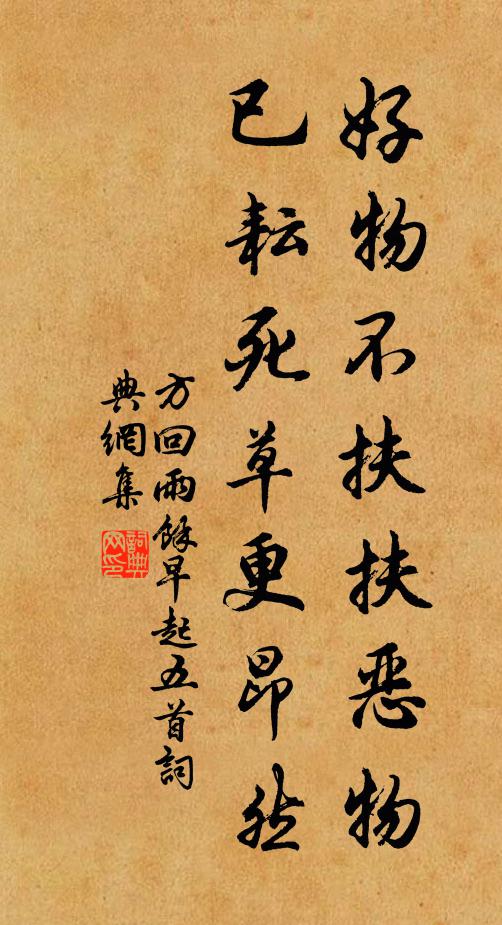 好物不扶扶恶物
已耘死草更昂然
方回雨餘早起五首詞
典網集
詞典网印